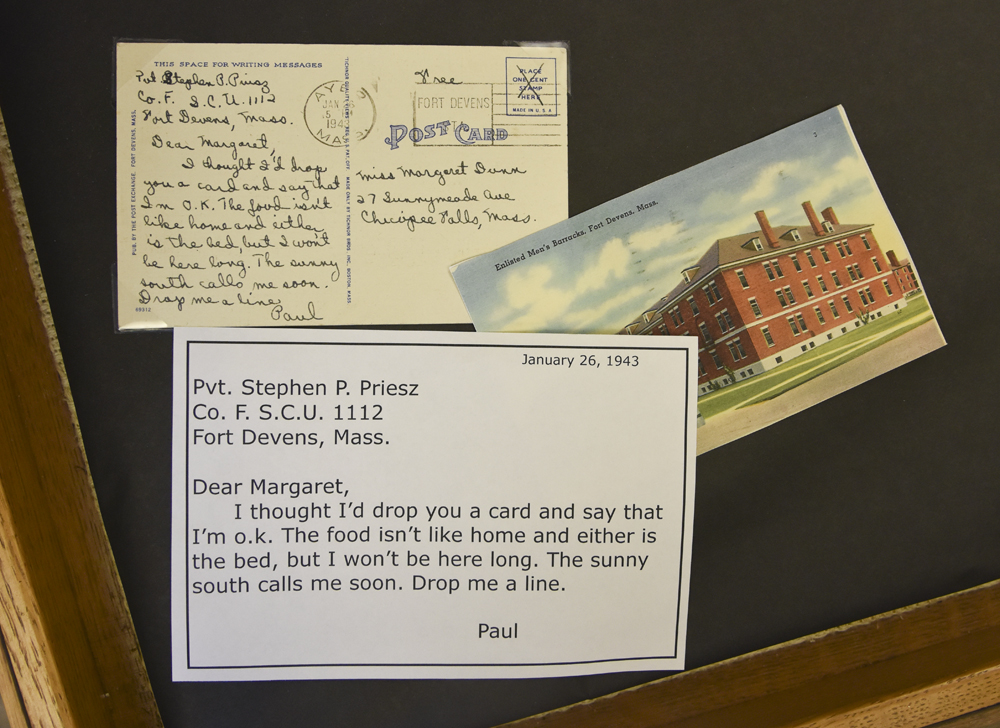 THIS SPACE FOR WRITING MESSAGES
Pvt Stephen P. Priesz
Co. F. S.C.U. 1112
Fort Devens, Mass.
Dear Margaret,
I thought I'd drop
you a card and say that
I'm O.K. The food isn't
like home and either
is the bed, but I won't
be here long. The sunny
south calls me soon.
Drop me a line
Paul
PUB. BY THE POST EXCHANGE, FORT DEVENS, MASS.
68512
MADE ONLY BY TICHNOR BROS. INC. BOSTON MASS
AYER
JAN 26
1943
MASS
Free
FORT DEVENS
PLACE
ONE CENT
STAMP
HERE
MADE IN U.S.A
POST CARD
Miss Margaret Dunn
27 Sunnymeade Ave
Chicopee Falls, Mass.
3
Enlisted Men's Barracks, Fort Devens, Mass.
January 26, 1943
Pvt. Stephen P. Priesz
Co. F. S.C.U. 1112
Fort Devens, Mass.
Dear Margaret,
I thought I'd drop you a card and say that
I'm o.k. The food isn't like home and either is
the bed, but I won't be here long. The sunny
south calls me soon. Drop me a line.
Paul